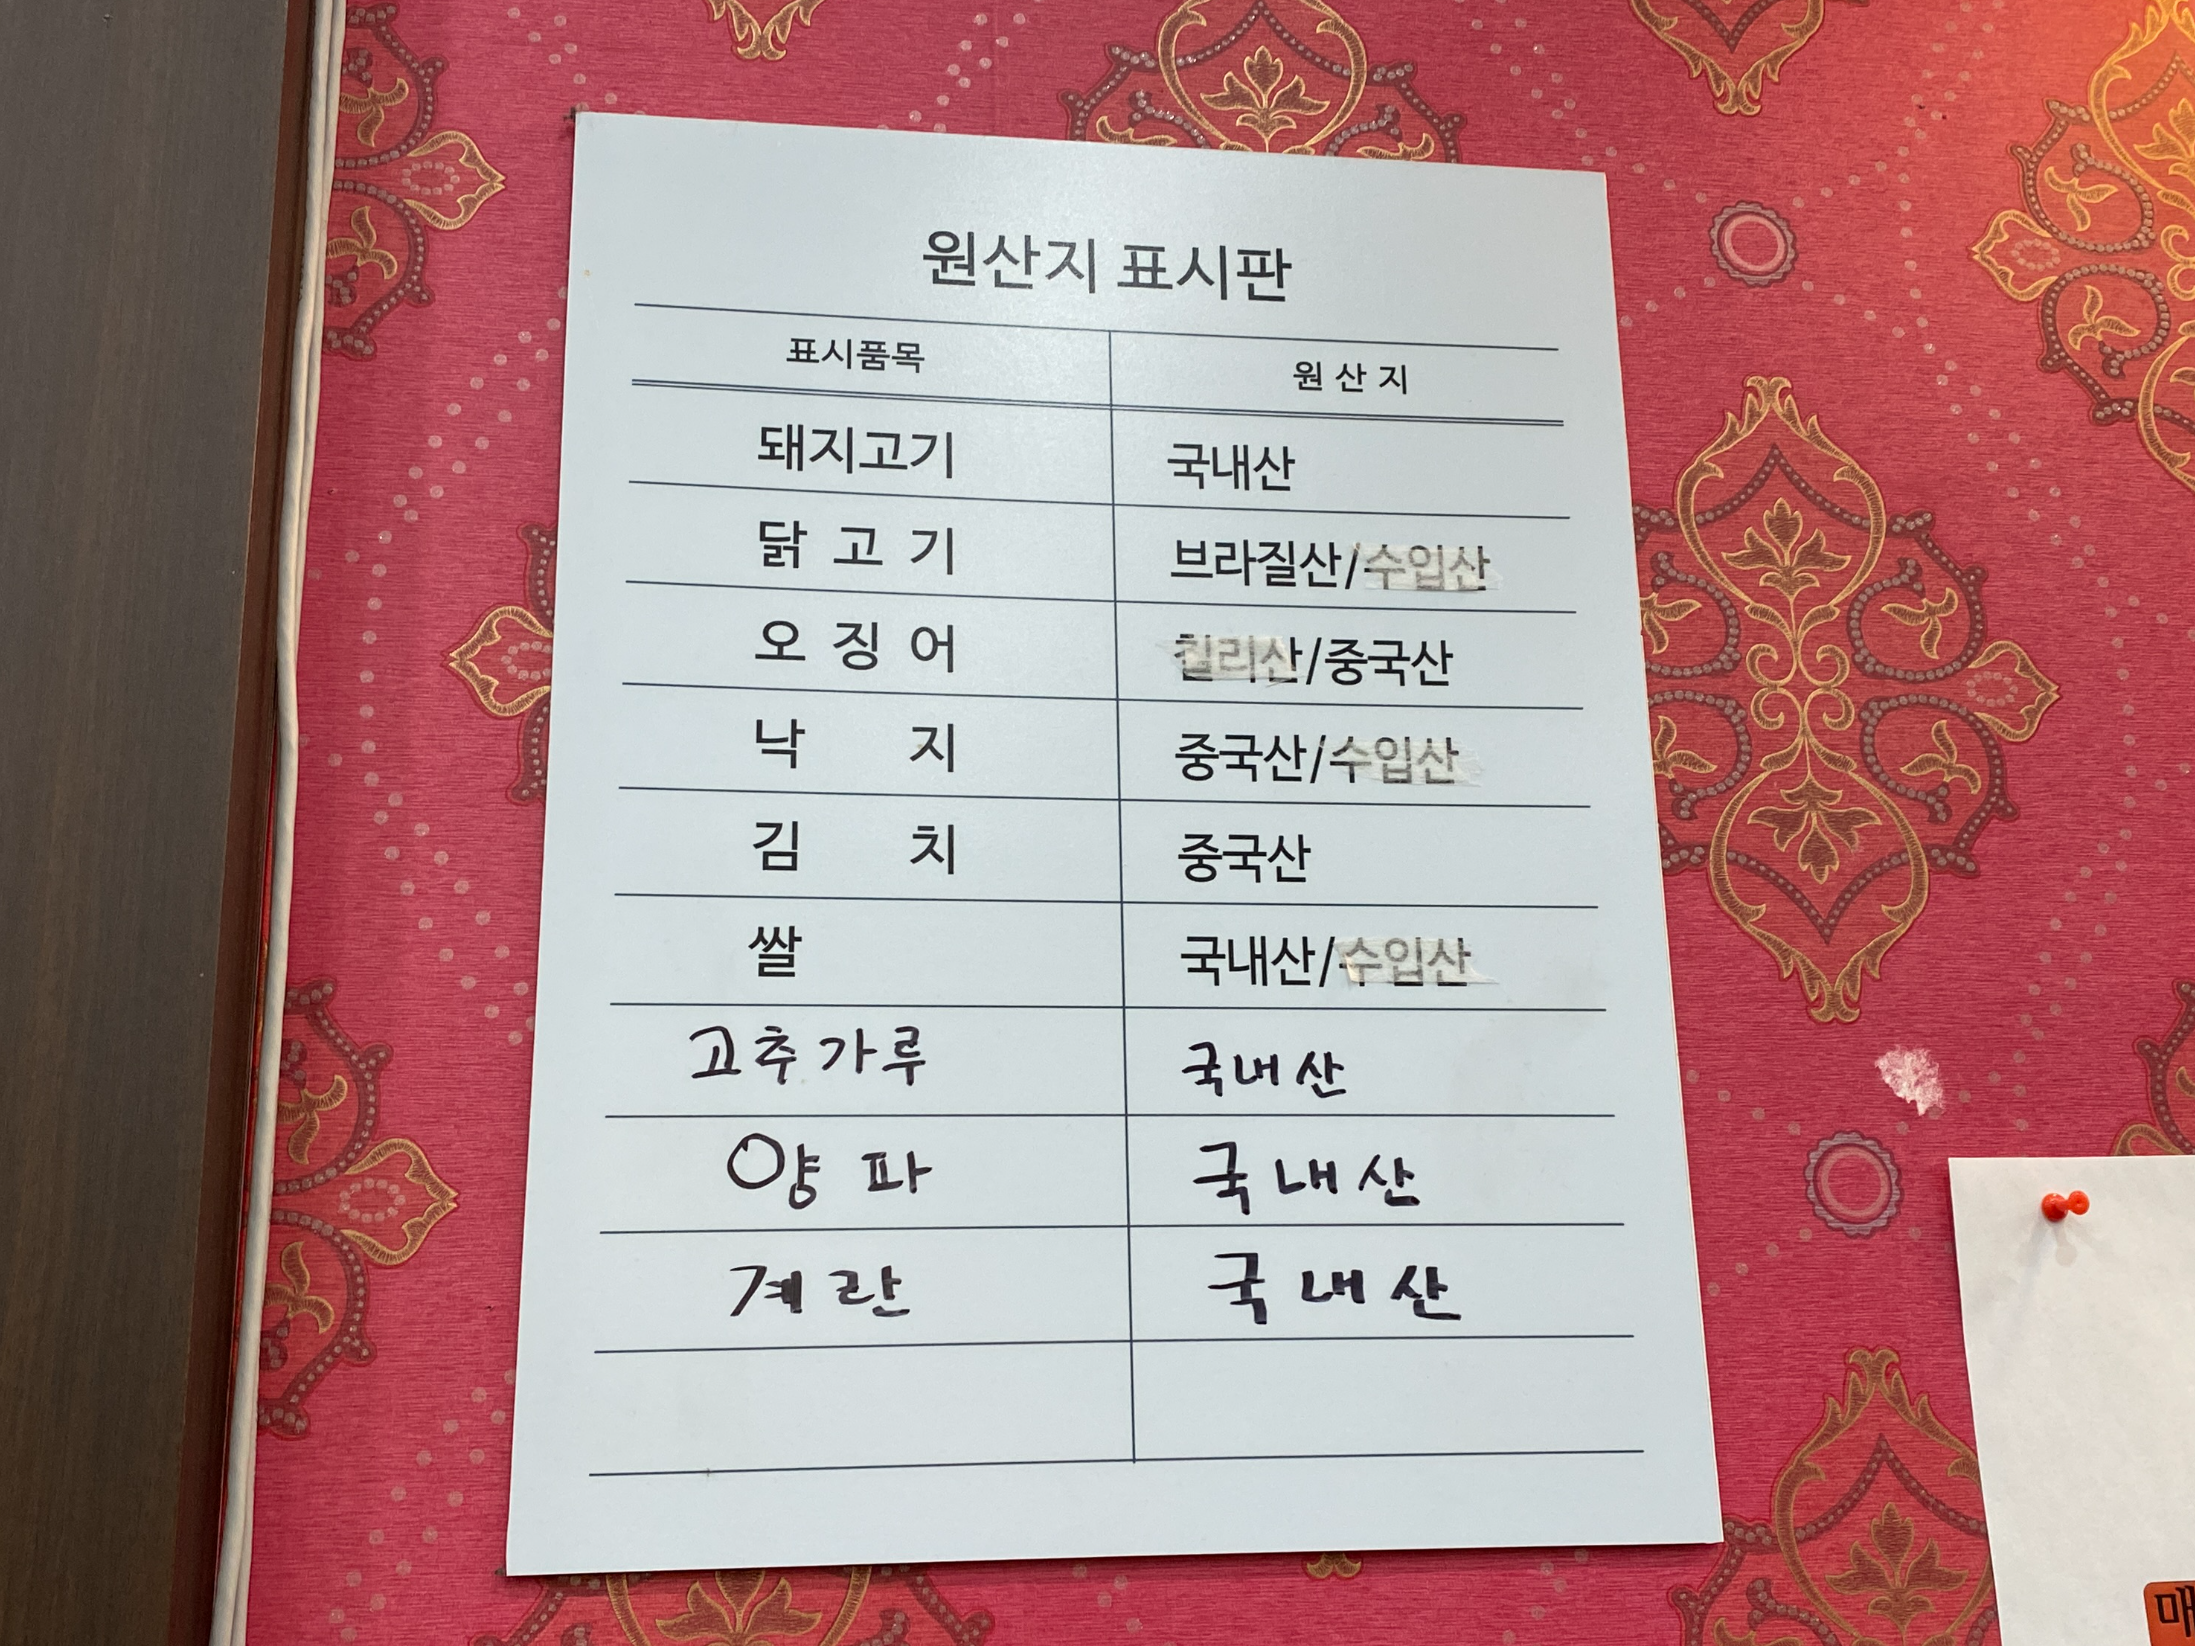 원산지 표시판
표시품목 원 산 지
돼지고기 국내산
닭 고 기 브라질산/수입산
오 징 어 칠리산/중국산
낙 지 중국산/수입산
김 치 중국산
쌀 국내산/수입산
고추가루 국내산
양파 국내산
계란 국내산
매